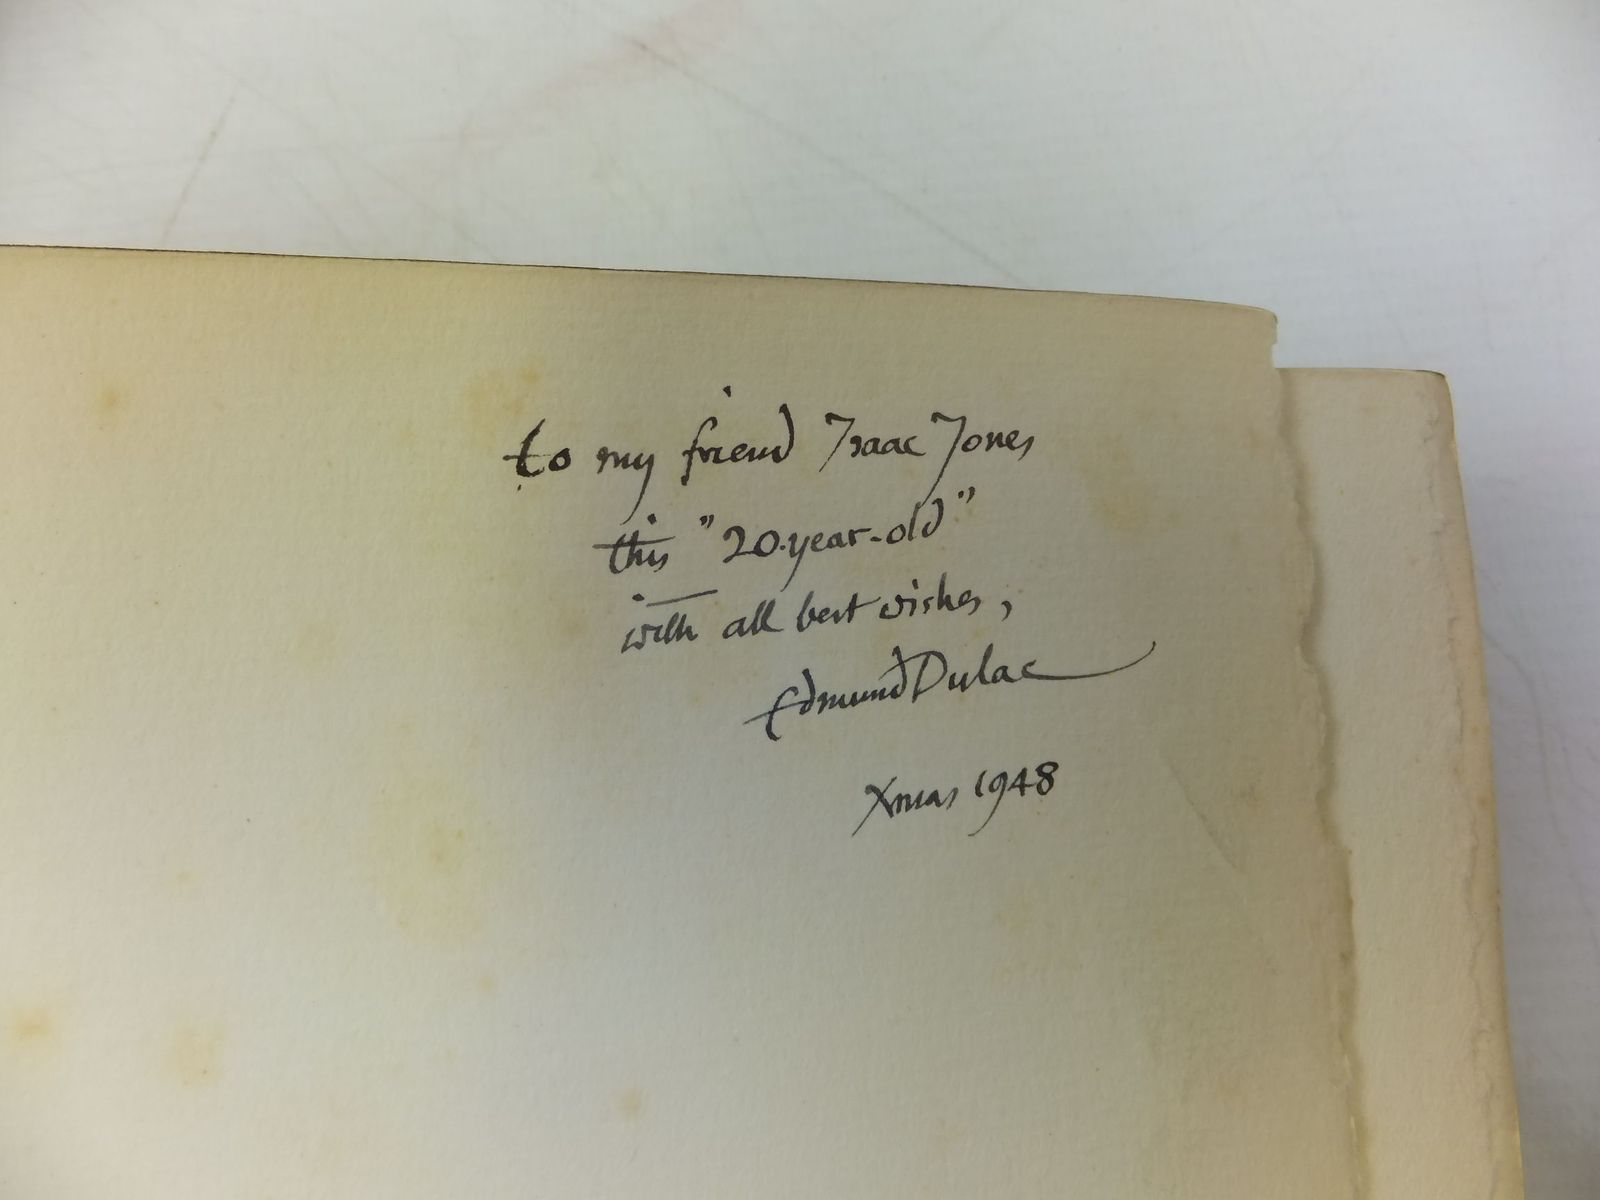 to my friend Isaac Jones
this "20-year-old"
with all best wishes,
Edmund Dulac
Xmas 1948